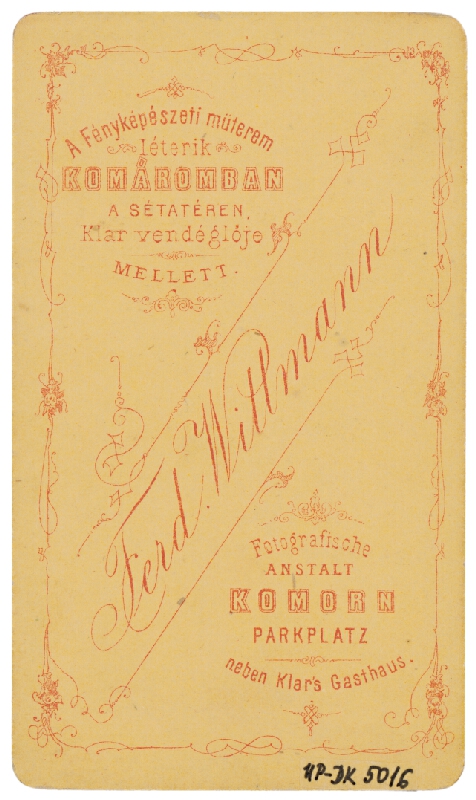 A Fényképészeti műterem
léterik
KOMÁROMBAN
A SÉTATÉREN,
Klar vendéglője
MELLETT.
Ferd. Wittmann
Fotografische
ANSTALT
KOMORN
PARKPLATZ
neben Klar's Gasthaus.
UP-JK 5016